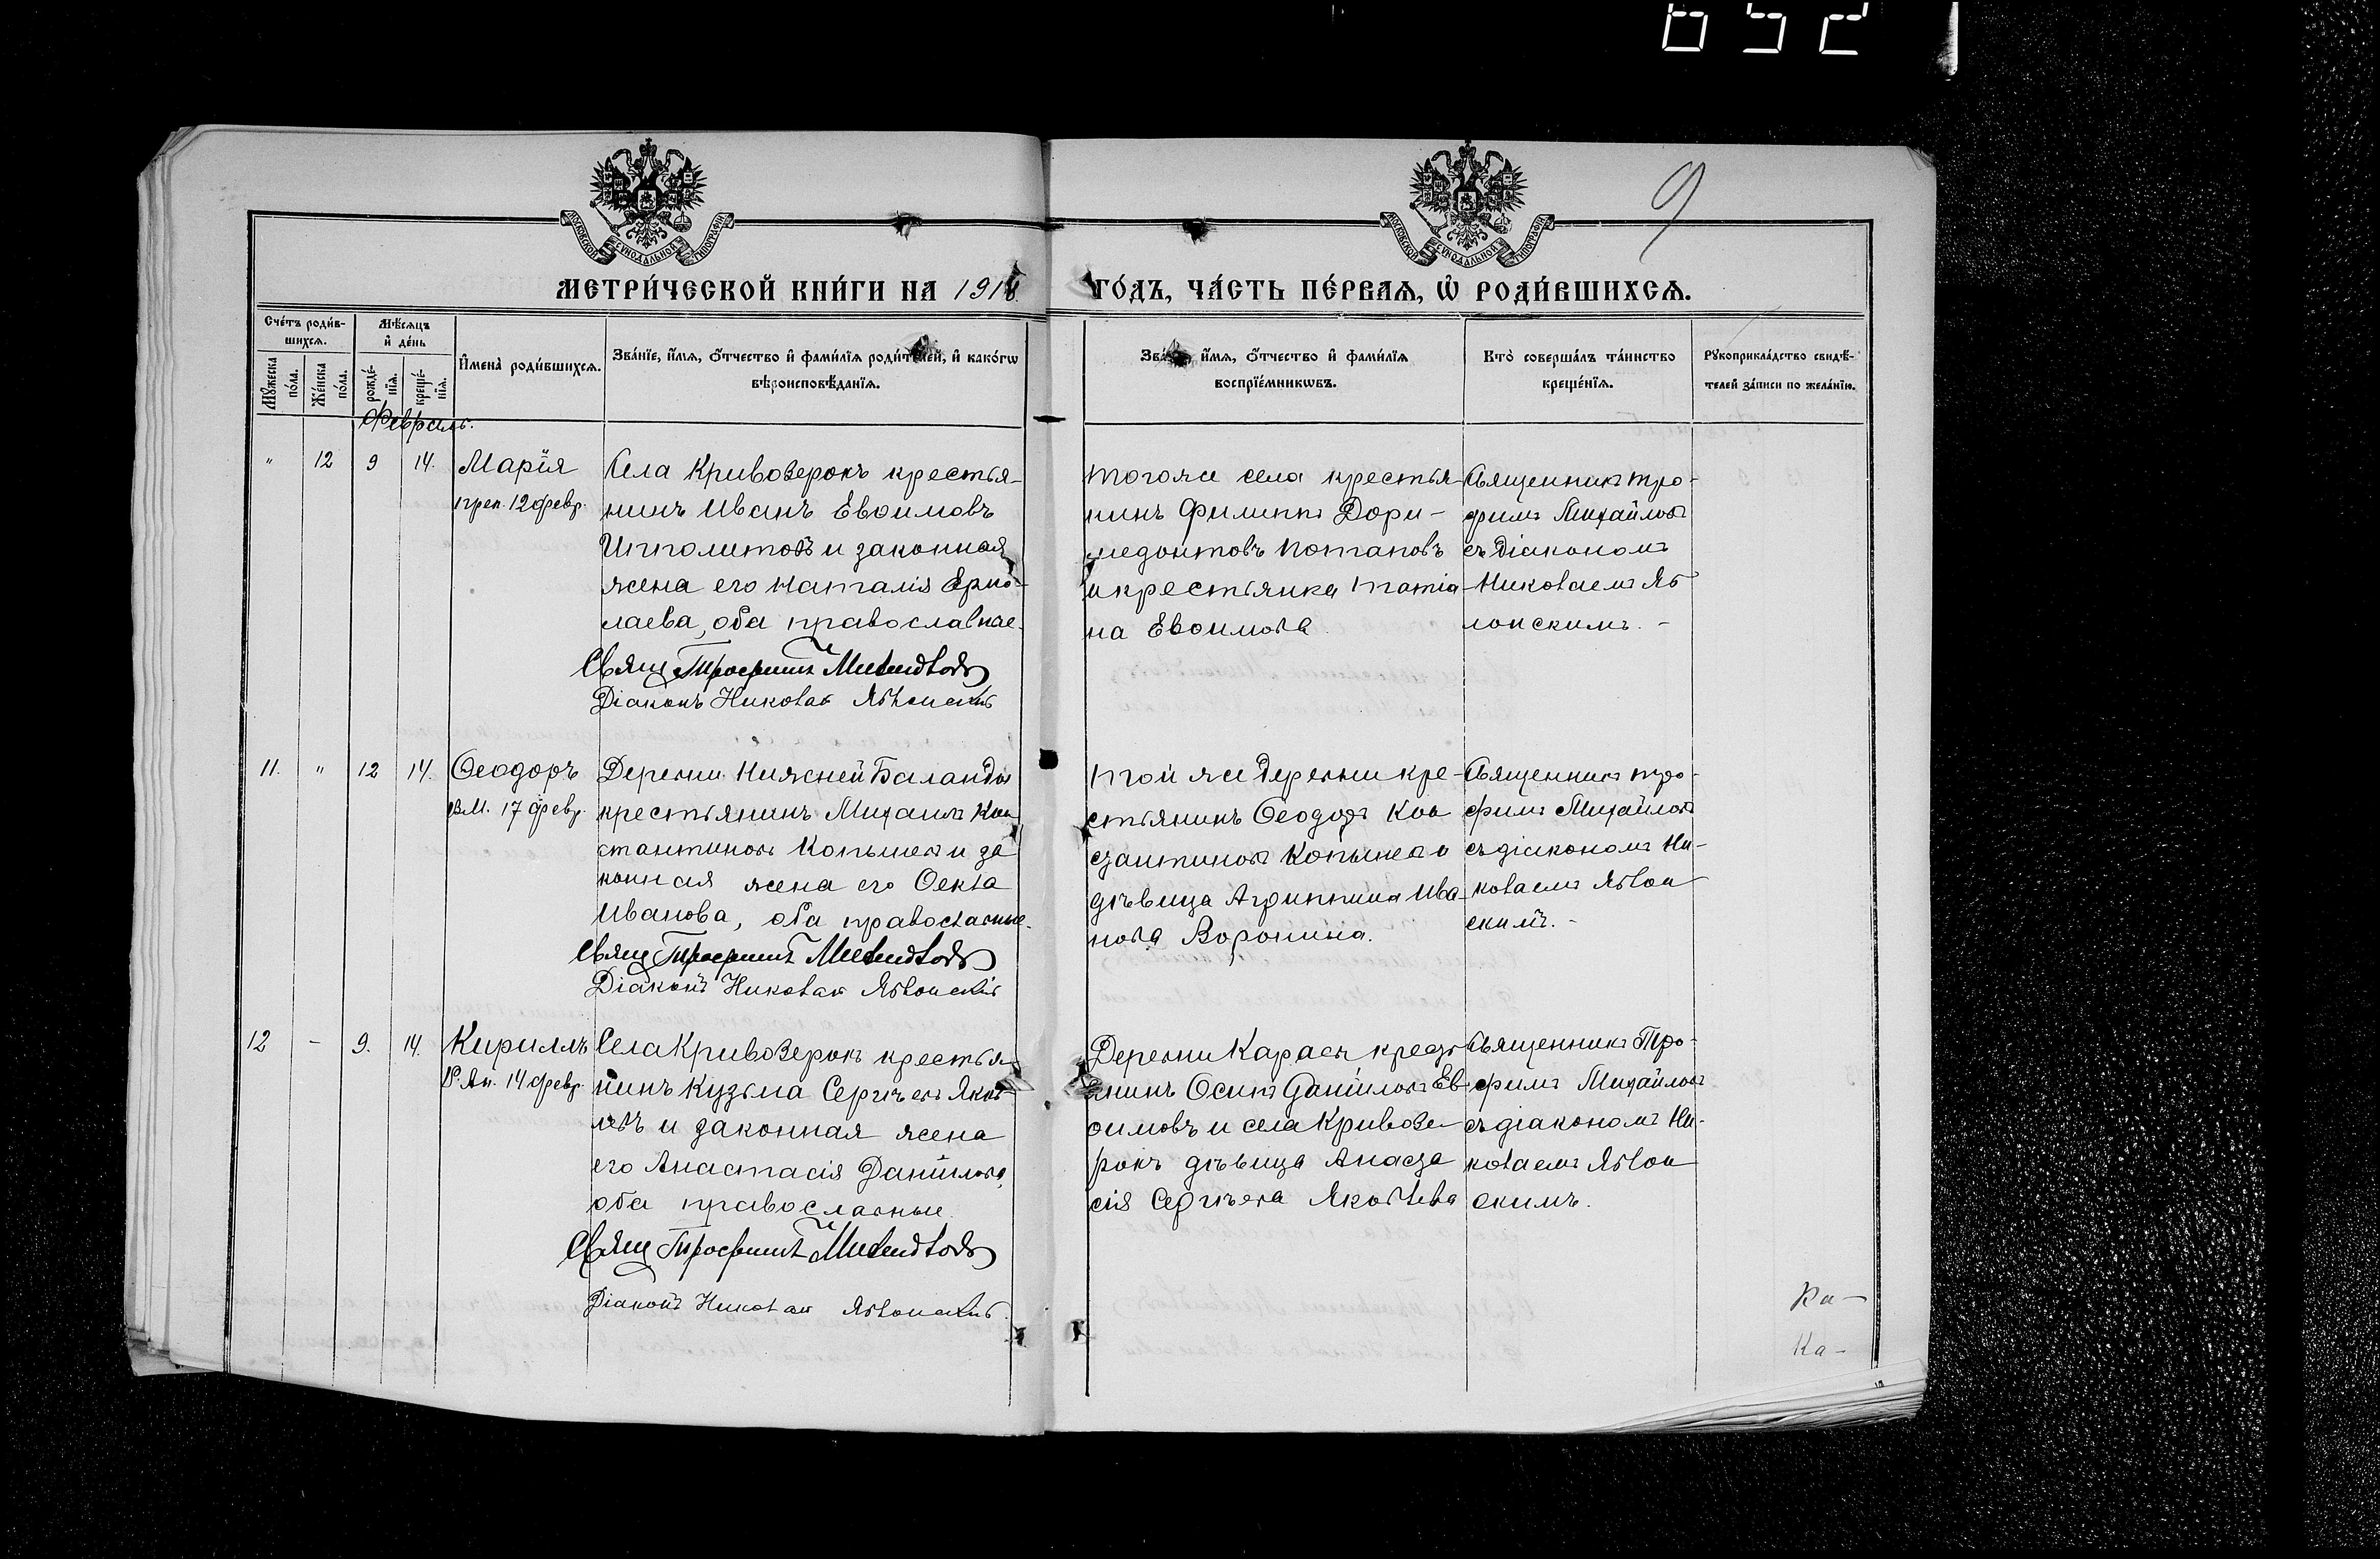 9
МЕТРИ́ЧЕСКОЙ КНИ́ГИ НА 191
ГО́ДЪ, ЧА́СТЬ ПЕ́РВАѦ, Ѽ РОДИ́ВШИХСѦ.
Сче́тъ роди́в-
шихсѧ.
Мѣ́сѧцъ
и҆ де́нь
Мꙋ́жеска
по́ла.
Же́нска
по́ла.
рожде́-
нїѧ.
креще́-
нїѧ.
И҆мена̀ роди́вшихсѧ.
Зва́нїе, и҆́мѧ, о҆́тчество и҆ фами́лїѧ роди́телей, и҆ како́гѡ
вѣроисповѣ́данїѧ.
и҆́мѧ, о҆́тчество и҆ фами́лїѧ
воспрїе́мникѡвъ.
Кто̀ соверша́лъ та́инство
креще́нїѧ.
Рꙋкоприкла́дство свидѣ́-
телей за́писи по жела́нїю.
Февраль.
" 12 9 14.
Марія
преп. 12 февр.
Села Кривозерокъ крестья-
нинъ Иванъ Евѳимовъ
Ипполитовъ и законная
жена его Наталія Ермо-
лаева, оба православные.
Свящ Трофимъ Михайловъ
Діаконъ Николай Яблонскій
тогоже села крестья-
нинъ Филиппъ Дори-
медонтовъ Потаповъ
и крестьянка Татіа-
на Евѳимова
Священникъ Тро-
фимъ Михайловъ
съ діакономъ
Николаемъ Яб
лонскимъ. -
11. " 12 14.
Ѳеодоръ
вм. 17 февр.
Деревни Нижней Баланды
крестьянинъ Михаилъ Кон
стантиновъ Копыловъ и за
конная жена его Ѳекла
Иванова, оба православные.
Свящ Трофимъ Михайловъ
Діаконъ Николай Яблонскій
той же деревни кре-
стьянинъ Ѳеодоръ Кон
стантиновъ Копыловъ и
дѣвица Агриппина Ива-
нова Воронина.
Священникъ Тро-
фимъ Михайловъ
съ діакономъ Ни-
колаемъ Яблон
скимъ. -
12 - 9. 14.
Кириллъ
Р. Ап. 14 февр.
Села Кривозерокъ крестья-
нинъ Кузьма Сергѣевъ Яков-
левъ и законная жена
его Анастасія Данилова,
оба православные.
Свящ Трофимъ Михайловъ
Діаконъ Николай Яблонскій.
Деревни Карасы кресть
янинъ Осипъ Даніиловъ Ев-
ѳимовъ и села Кривозе-
рокъ дѣвица Анаста
сія Сергѣева Яковлева
Священникъ Тро-
фимъ Михайловъ
съ діакономъ Ни-
колаемъ Яблон
скимъ.
Ка-
Ка-